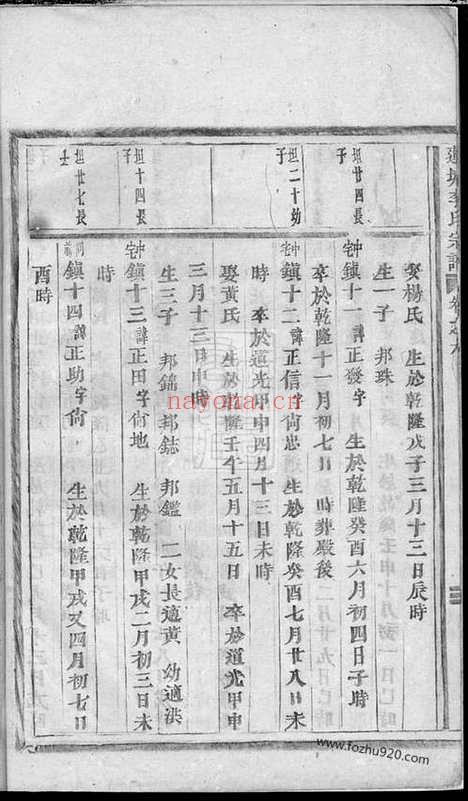 蓮塘李氏宗譜
卷之九
娶楊氏 生於乾隆戊子三月十三日辰時
生一子 邦珠
坦廿四長子
中宅鎮十一諱正發字 生於乾隆癸酉六月初四日子時
卒於乾隆十一月初七日 時葬嚴後
坦二十幼子
中宅鎮十二諱正信字尚忠 生於乾隆癸酉七月廿八日未
時 卒於道光甲申四月十三日未時
娶黃氏 生於乾隆壬午五月十五日 卒於道光甲申
三月十三日申時
生三子 邦錦 邦鋕 邦鑑 二女長適黃 幼適洪
坦十四長子
中宅鎮十三諱正田字尚地 生於乾隆甲戌二月初三日未
時
坦廿七長士
鎮十四諱正助字尚 生於乾隆甲戌又四月初七日
酉時
nayona.cn
www.fozhu920.com